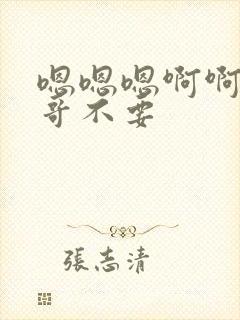 嗯嗯嗯啊啊
哥不要
張志清